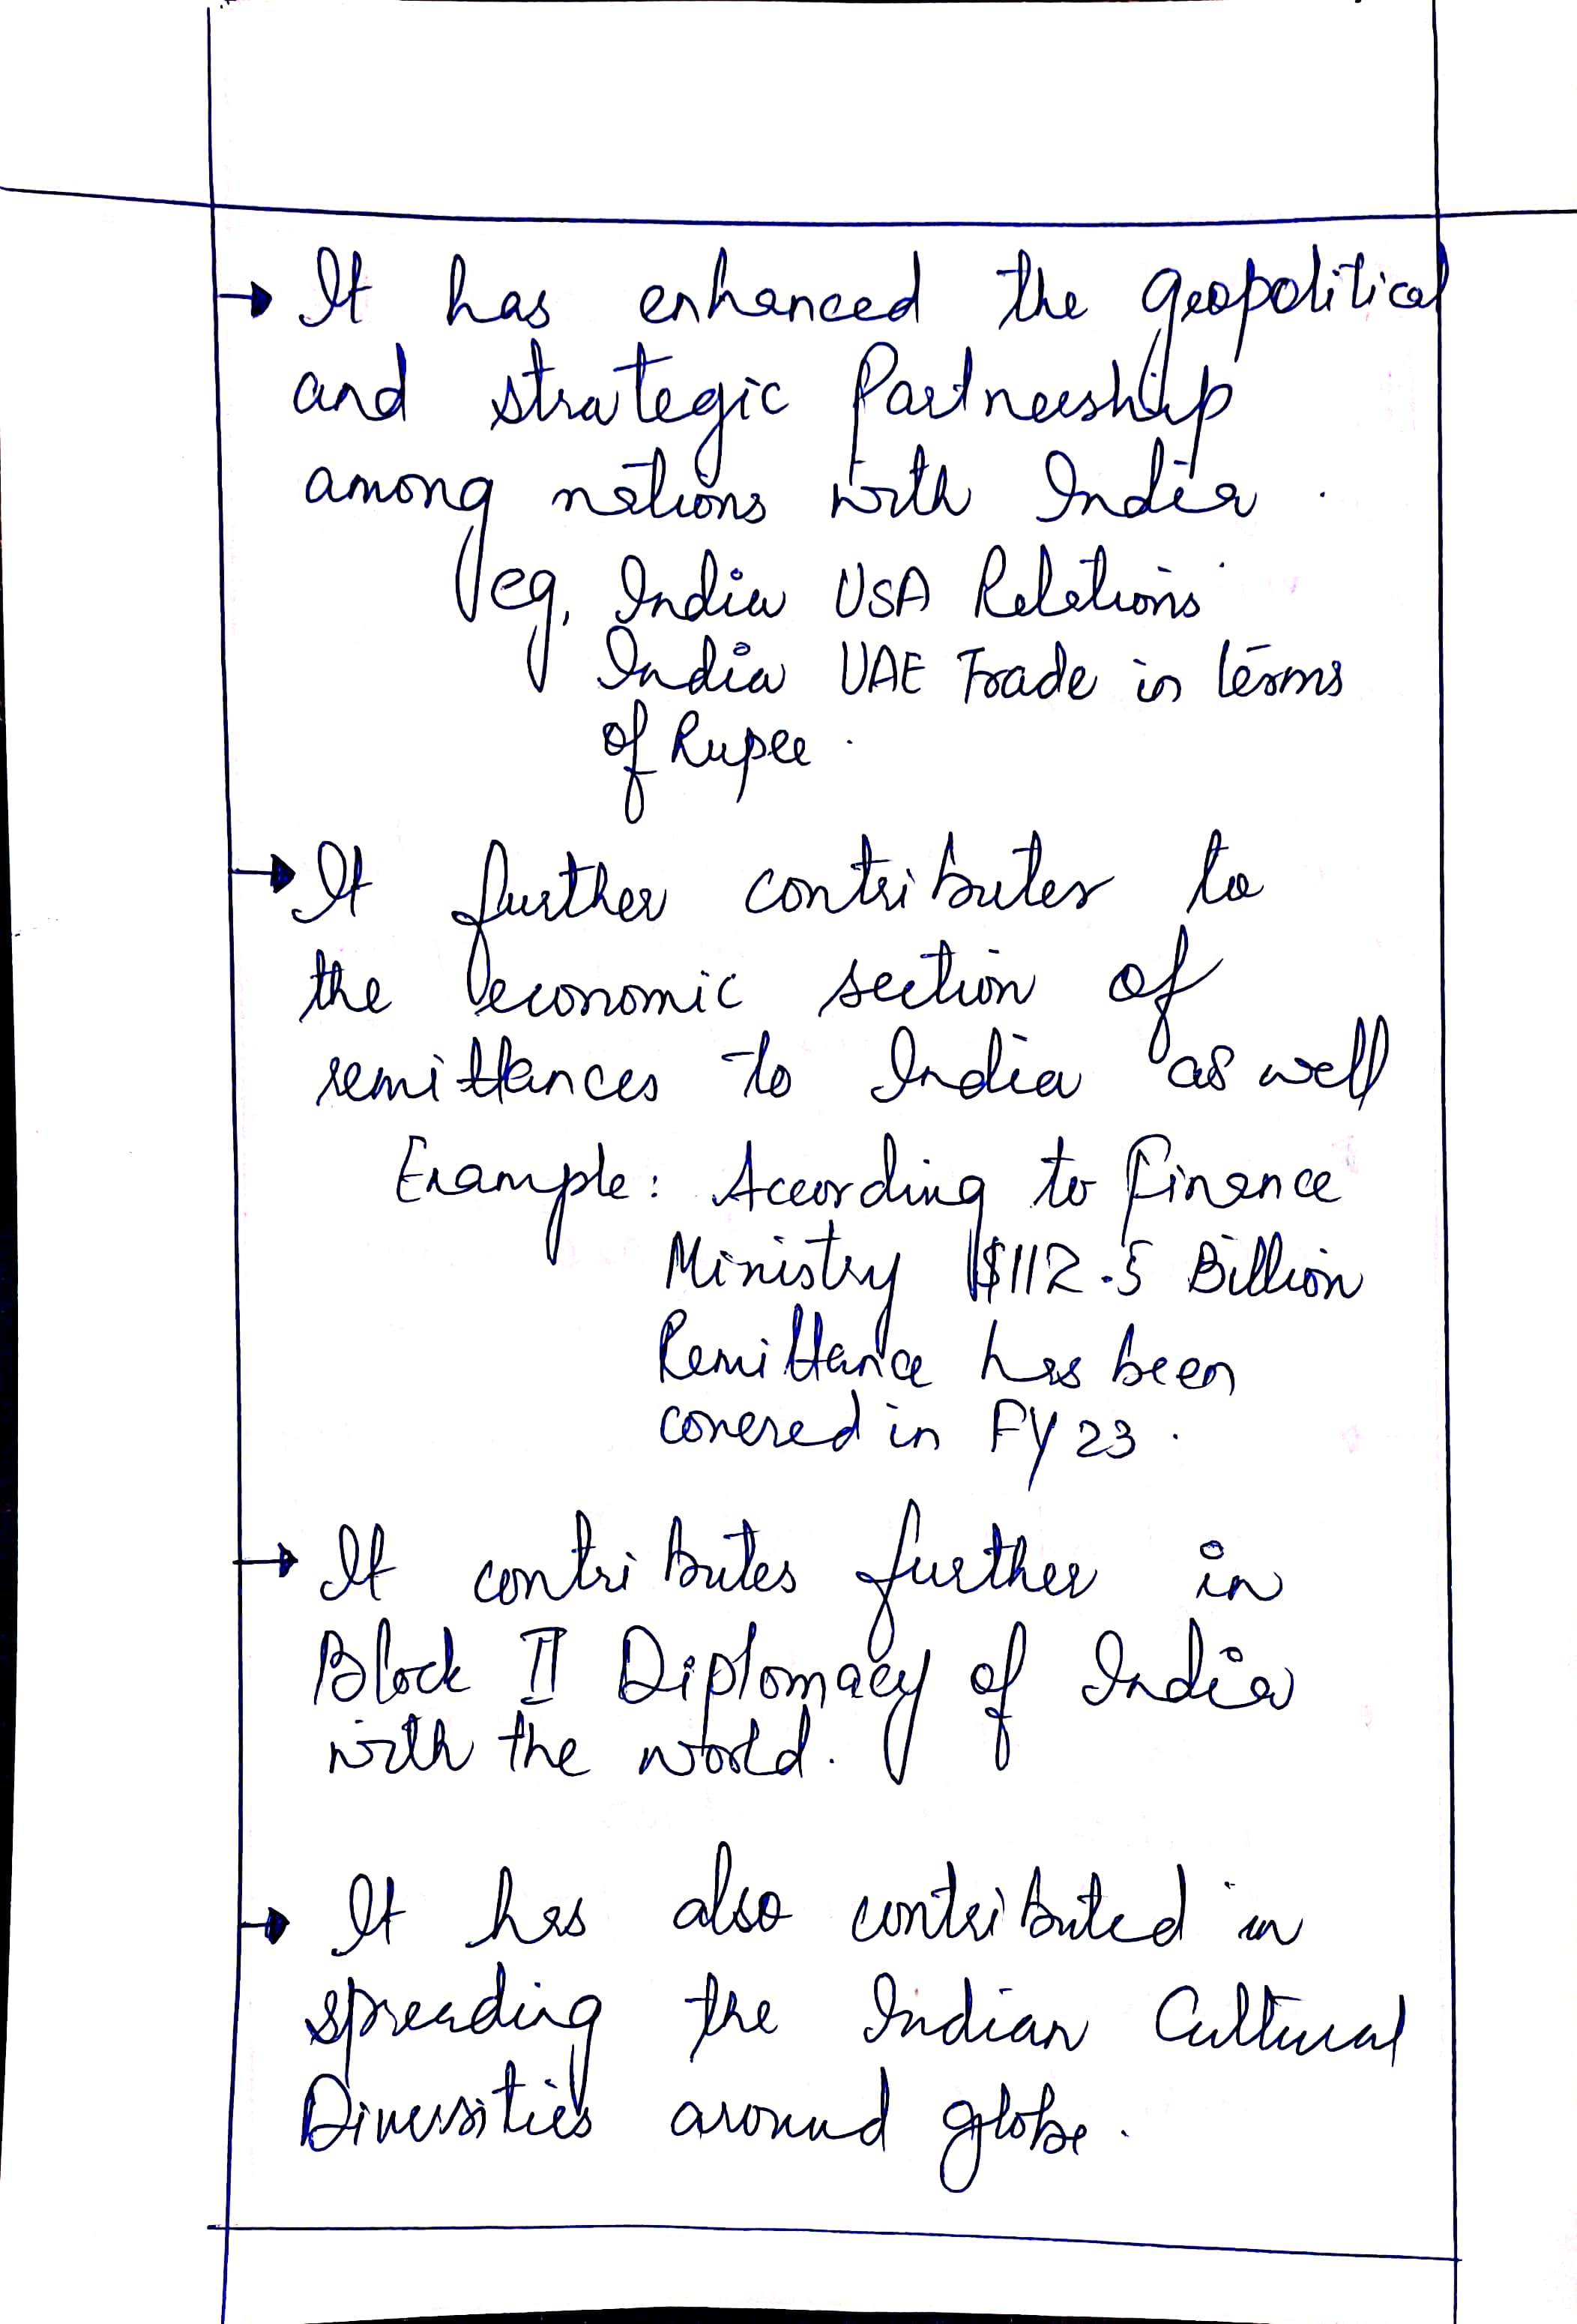 → It has enhanced the geopolitical
and strategic Partnership
among nations with India.
eg, India USA Relations
India UAE Trade in terms
of Rupee.
→ It further contributes to
the economic section of
remittances to India as well
Example: According to Finance
Ministry $112.5 Billion
Remittance has been
covered in FY 23.
→ It contributes further in
Block II Diplomacy of India
with the world.
→ It has also contributed in
spreading the Indian Cultural
Diversities around globe.